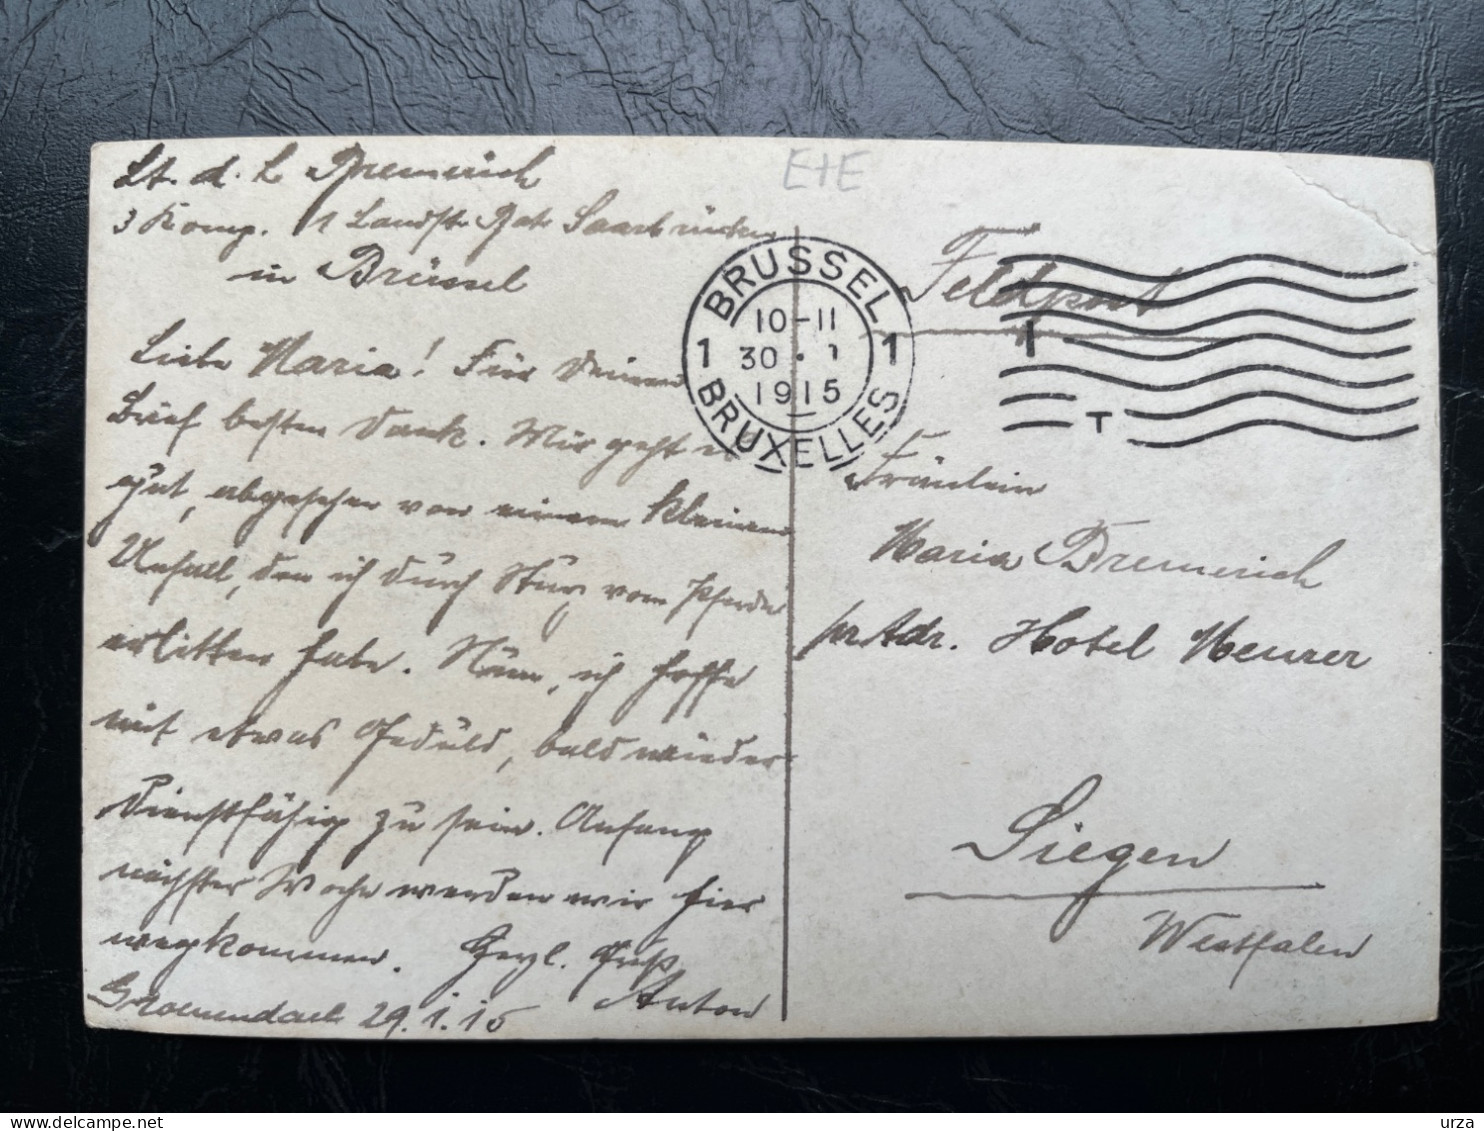 Lt. d. L Bremerich
3 Komp. 1 Landst. Bat. Saarbrücken
in Brüssel
Liebe Maria! Für Deinen
Brief besten Dank. Mir geht es
gut, abgesehen von einem kleinen
Unfall, den ich durch Sturz vom Pferde
erlitten habe. Nun, ich hoffe
mit etwas Geduld, bald wieder
dienstfähig zu sein. Anfang
nächster Woche werden wir hier
wegkommen. Herzl. Gruß
Anton
Groenendael 29.1.15
E+E
Feldpost
BRUSSEL
10-11
1 30 • 1 1
1915
BRUXELLES
1
T
Fräulein
Maria Bremerich
pr. Adr. Hotel Meurer
Siegen
Westfalen
delcampe.net
urza